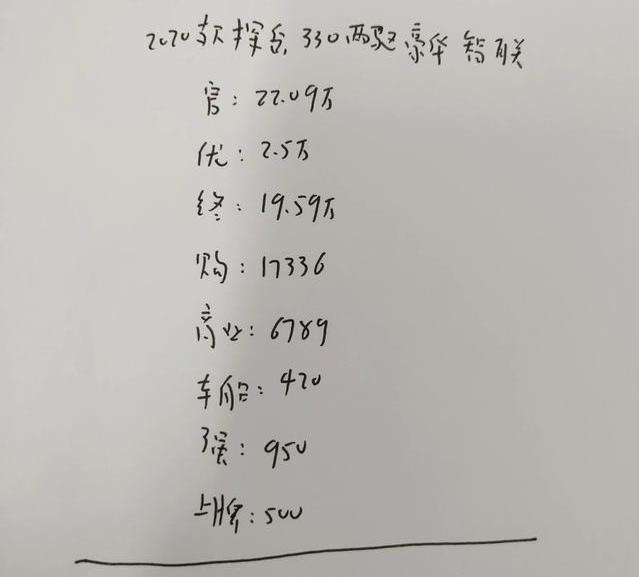 2020款探岳,330两驱豪华智联
官:22.09万
优:2.5万
终:19.59万
购:17336
商业:6789
车船:420
强:950
上牌:500